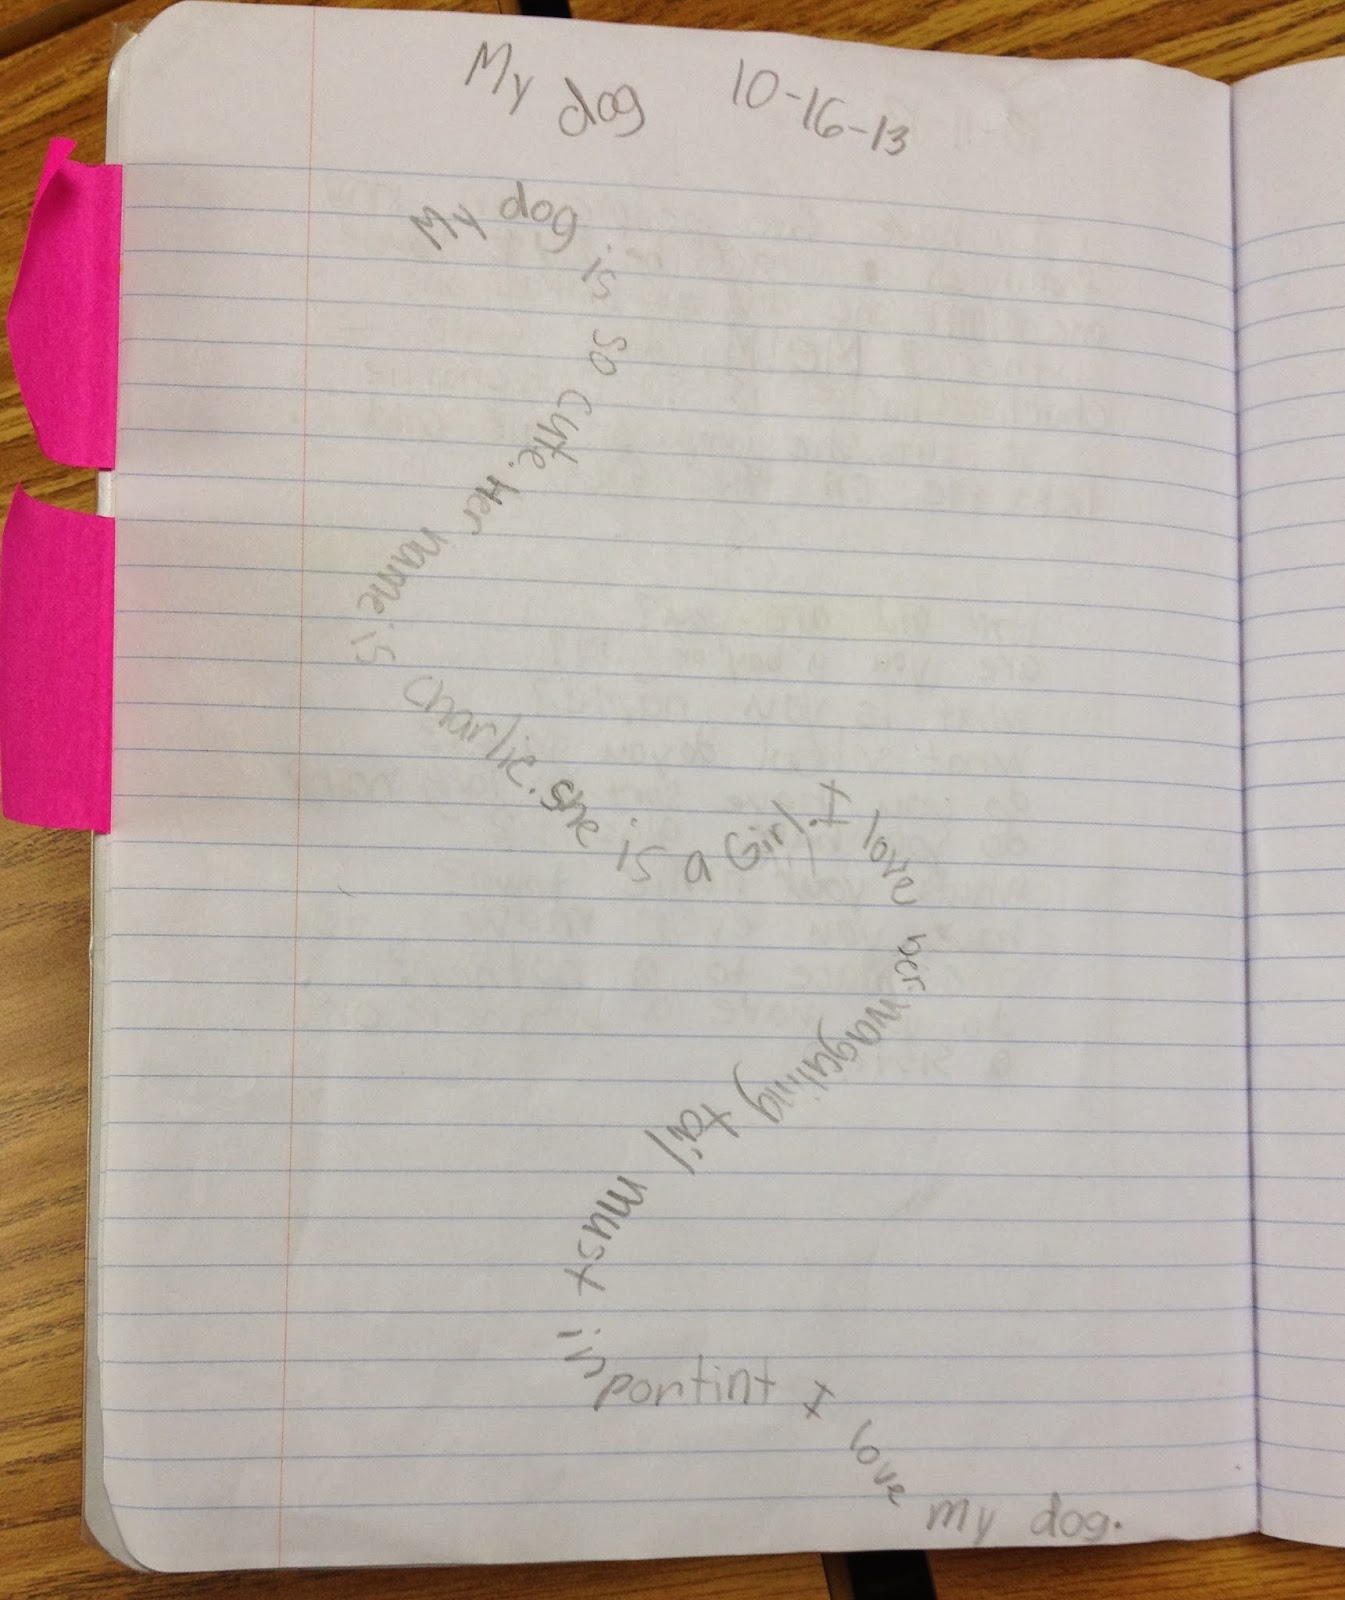 My dog 10-16-13
My dog is so cute. Her name is Charlie. she is a Girl. I love her waguling tail must inportint I love my dog.